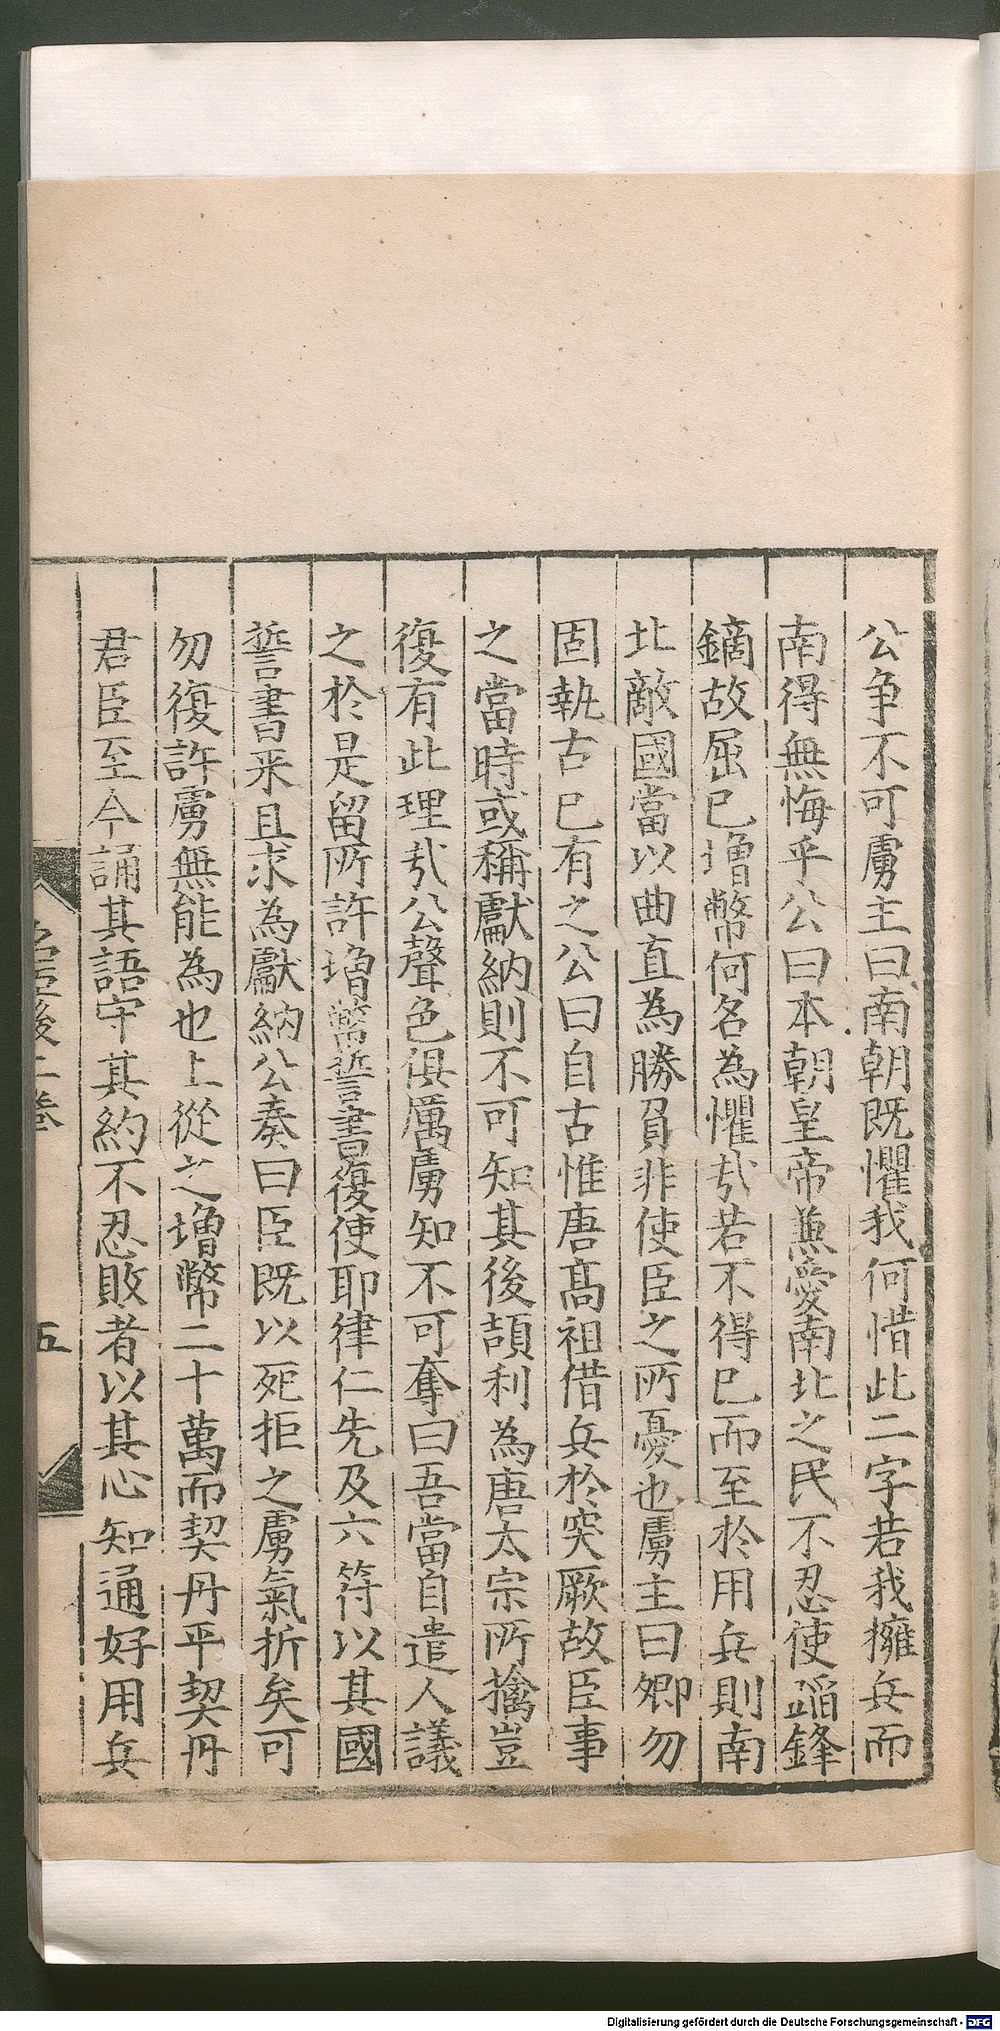 公争不可虜主曰南朝既懼我何惜此二字若我擁兵而
南得無悔乎公曰本朝皇帝兼愛南北之民不忍使蹈鋒
鏑故屈已增幣何名為懼㢤若不得已而至於用兵則南
北敵國當以曲直為勝負非使臣之所憂也虜主曰卿勿
固執古已有之公曰自古惟唐髙祖借兵於突厥故臣事
之當時或稱獻納則不可知其後頡利為唐太宗所擒豈
復有此理㢤公聲色俱厲虜知不可奪曰吾當自遣人議
之於是留所許增幣誓書復使耶律仁先及六符以其國
誓書来且求為獻納公奏曰臣既以死拒之虜氣折矣可
勿復許虜無能為也上從之增幣二十萬而契丹平契丹
君臣至今誦其語守其約不忍敗者以其心知通好用兵
名臣後二卷
五
Digitalisierung gefördert durch die Deutsche Forschungsgemeinschaft - DFG